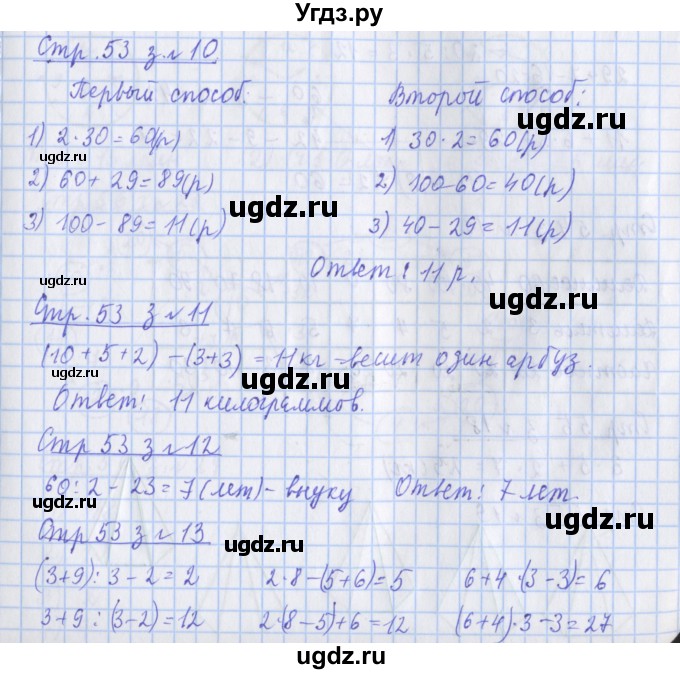 Угдз.ру
Стр. 53 з. № 10
Первый способ:
1) 2 · 30 = 60(р)
2) 60 + 29 = 89(р)
3) 100 - 89 = 11(р)
Второй способ:
1) 30 · 2 = 60(р)
2) 100 - 60 = 40(р)
3) 40 - 29 = 11(р)
Ответ: 11 р.
Стр. 53 з № 11
(10 + 5 + 2) - (3+3) = 11 кг - весит один арбуз.
Ответ: 11 килограммов.
Стр 53 з № 12
60 : 2 - 23 = 7 (лет) - внуку Ответ: 7 лет.
Стр 53 з № 13
(3+9) : 3 - 2 = 2 2 · 8 - (5+6) = 5 6 + 4 · (3 - 3) = 6
3 + 9 : (3 - 2) = 12 2 · (8 - 5) + 6 = 12 (6+4) · 3 - 3 = 27
ugdz.ru
ugdz.ru
ugdz.ru
ugdz.ru
ugdz.ru
ugdz.ru
ugdz.ru
ugdz.ru
ugdz.ru
ugdz.ru
ugdz.ru
ugdz.ru
ugdz.ru
ugdz.ru